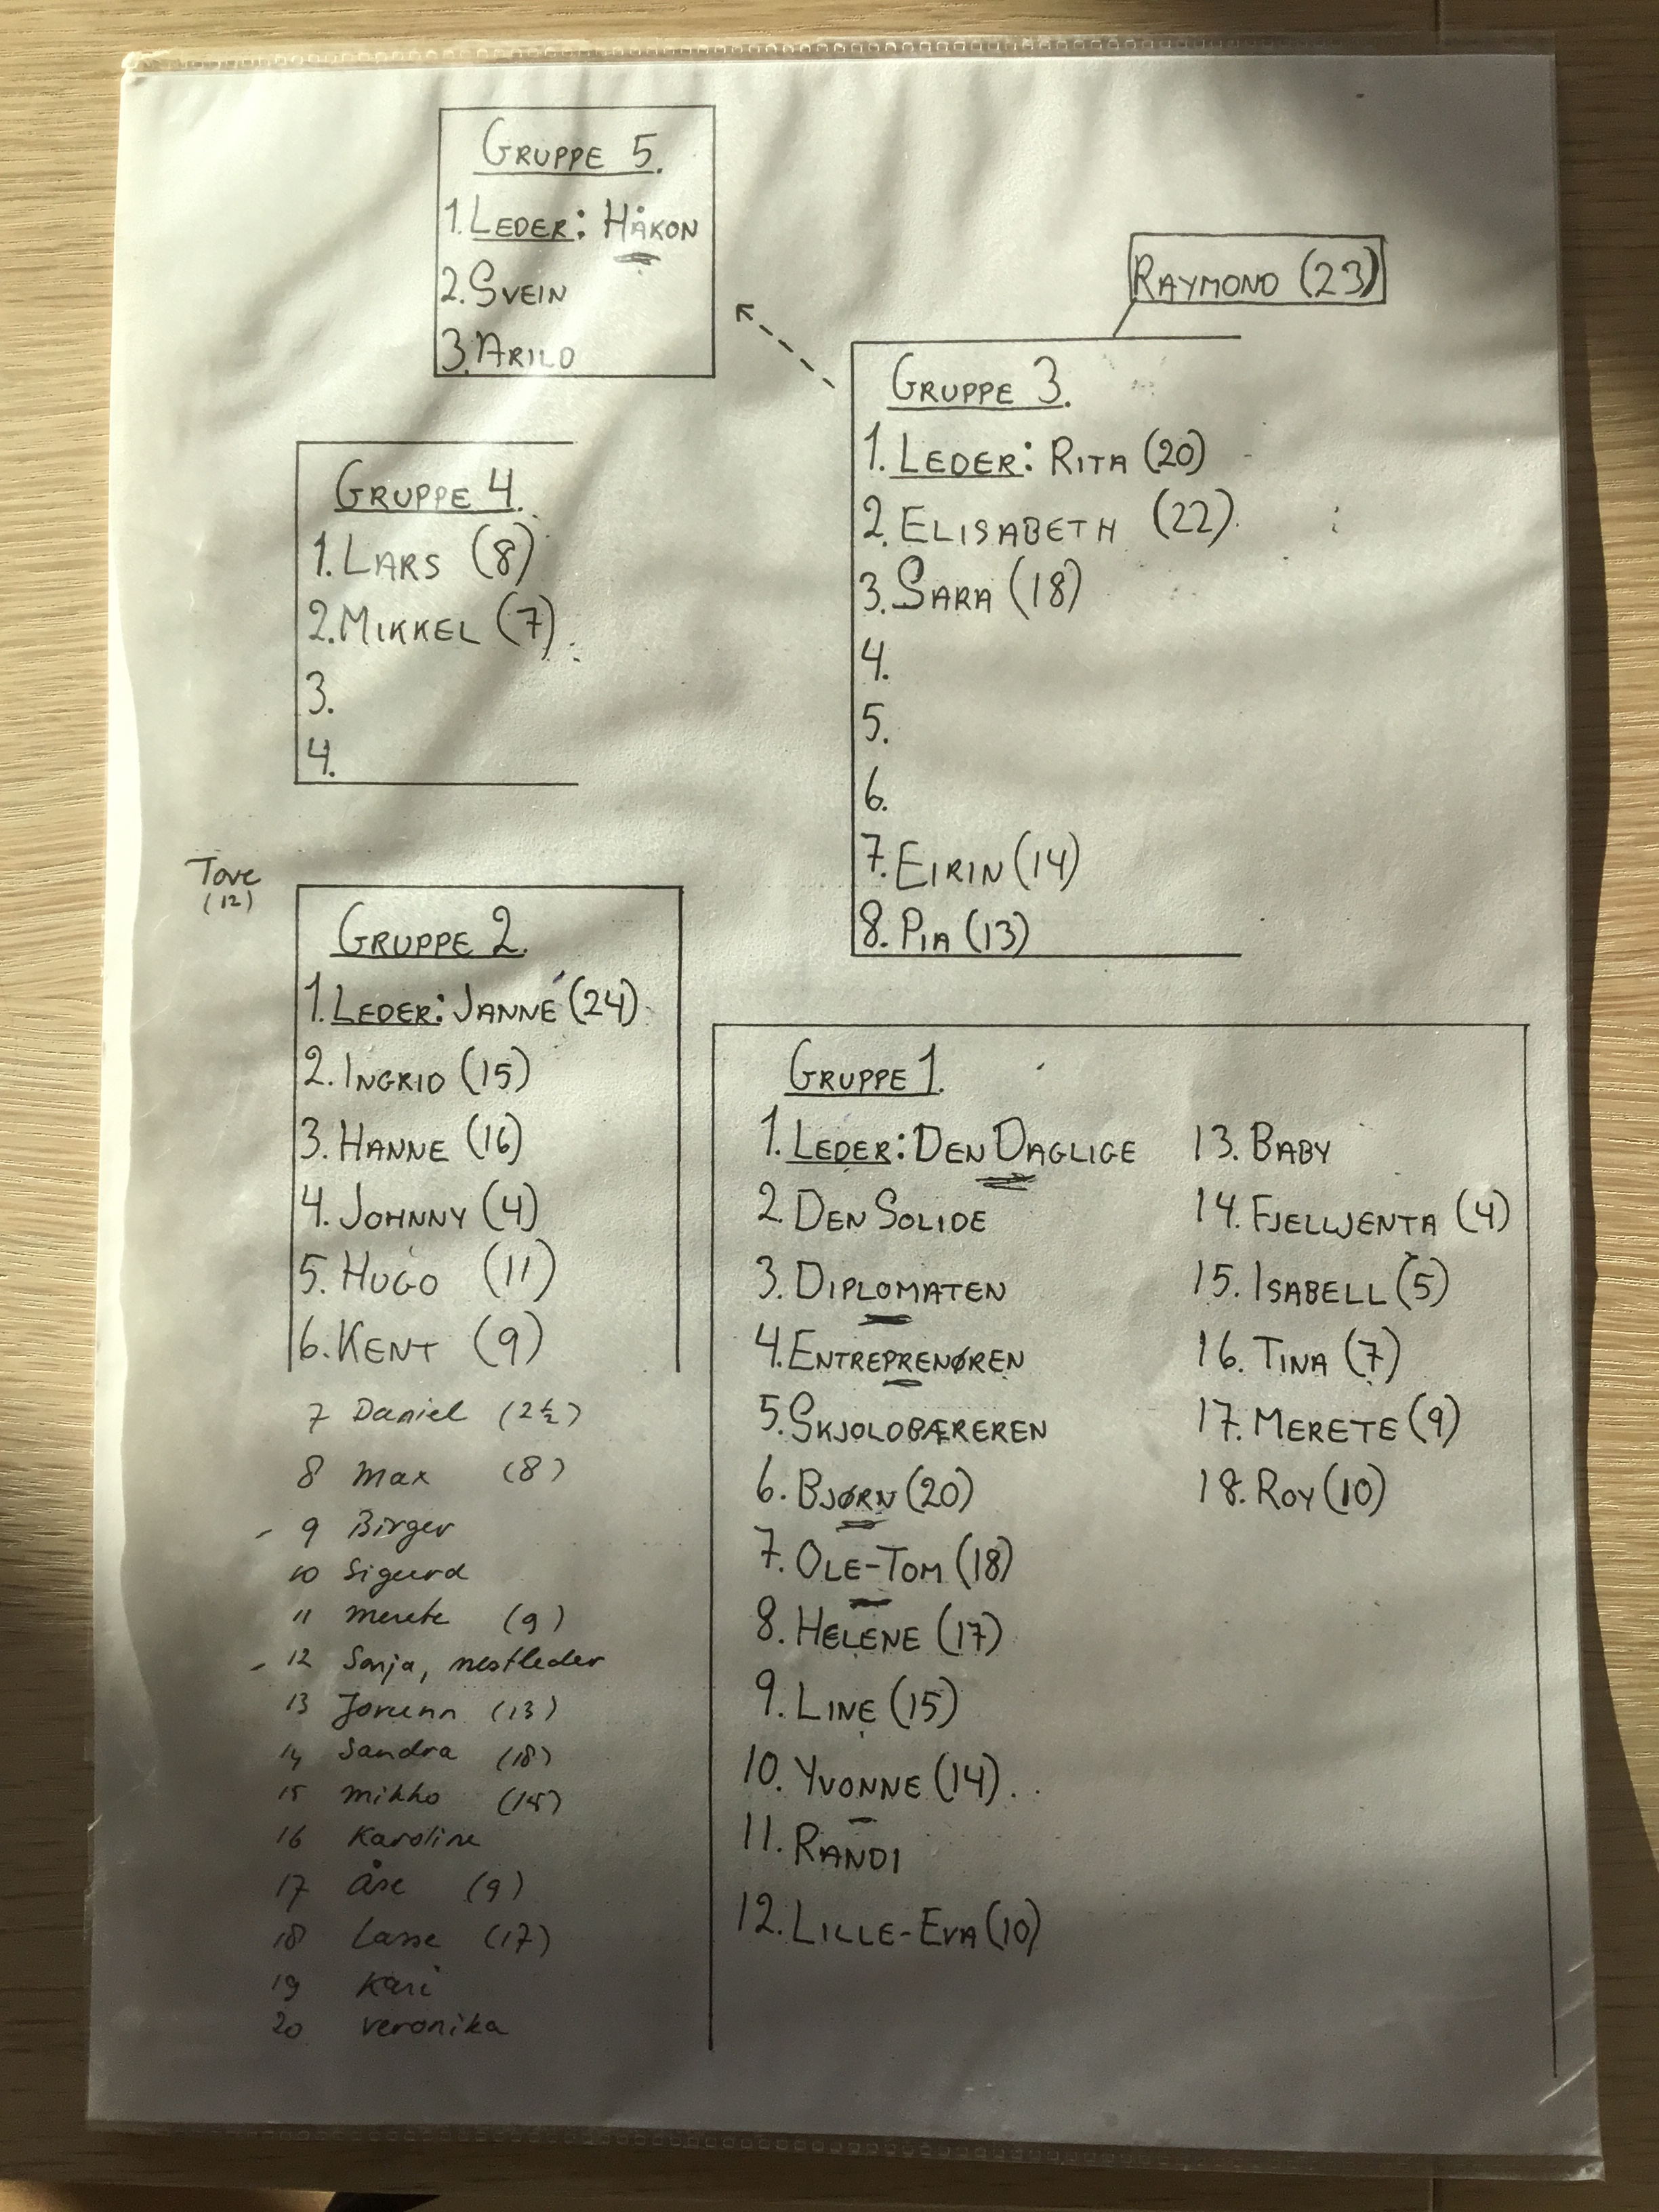 GRUPPE 5.
1. LEDER: HÅKON
2. SVEIN
3. ARILD
RAYMOND (23)
GRUPPE 3.
1. LEDER: RITA (20)
2. ELISABETH (22)
3. SARA (18)
4.
5.
6.
7. EIRIN (14)
8. PIA (13)
GRUPPE 4.
1. LARS (8)
2. MIKKEL (7)
3.
4.
Tove
(12)
GRUPPE 2.
1. LEDER: JANNE (24)
2. INGRID (15)
3. HANNE (16)
4. JOHNNY (4)
5. HUGO (11)
6. KENT (9)
7 Daniel (2½)
8 Max (8)
9 Birger
10 Sigurd
11 Merete (9)
12 Sonja, nestleder
13 Jorunn (13)
14 Sandra (18)
15 Mikko
16 Karoline
17 Åse (9)
18 Lasse (17)
19 Kari
20 Veronika
GRUPPE 1.
1. LEDER: DEN DAGLIGE
2. DEN SOLIDE
3. DIPLOMATEN
4. ENTREPRENØREN
5. SKJOLDBÆREREN
6. BJØRN (20)
7. OLE-TOM (18)
8. HELENE (17)
9. LINE (15)
10. YVONNE (14)
11. RANDI
12. LILLE-EVA (10)
13. BABY
14. FJELLJENTA (4)
15. ISABELL (5)
16. TINA (7)
17. MERETE (9)
18. ROY (10)